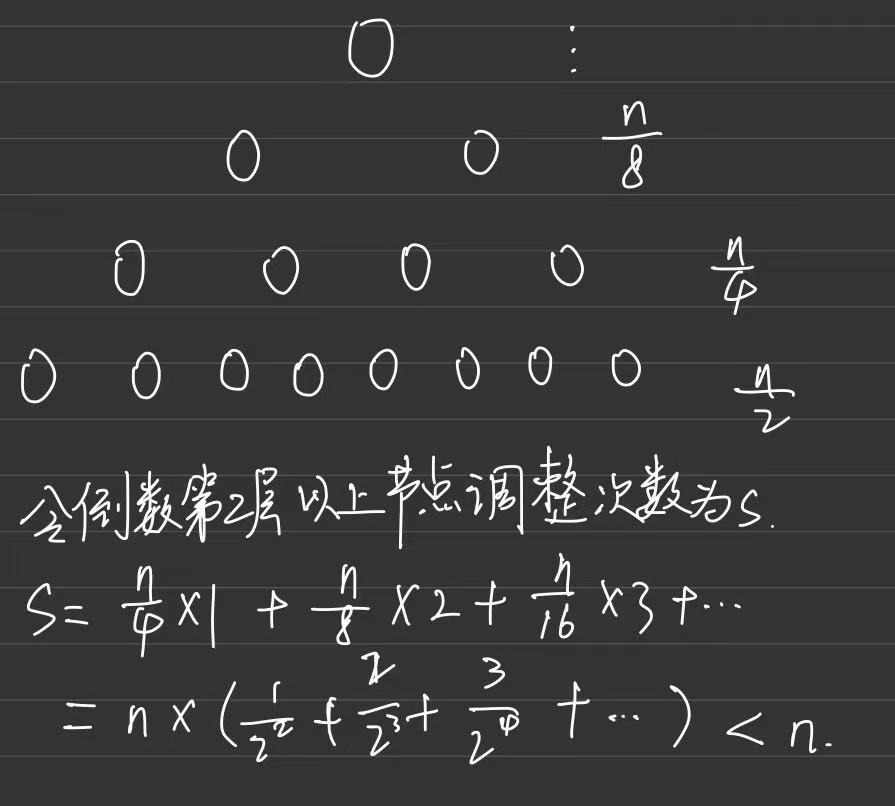 0 ⋮
0 0 n/8
0 0 0 0 n/4
0 0 0 0 0 0 0 0 n/2
令倒数第2层以上节点调整次数为S.
S = n/4 × 1 + n/8 × 2 + n/16 × 3 + ⋯
= n × (1/2² + 2/2³ + 3/2⁴ + ⋯) < n.